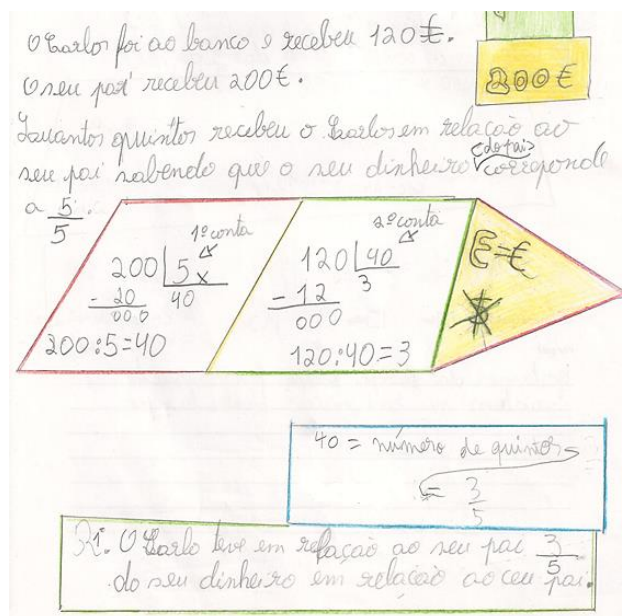 O Carlos foi ao banco e recebeu 120€.
O seu pai recebeu 200€.
200€
Quantos quintos recebeu o Carlos em relação ao
seu pai sabendo que o seu dinheiro (do pai) corresponde
a 5/5.
1ª conta
200 | 5 x
- 20 40
000
200:5=40
2ª conta
120 | 40
- 12 3
000
120:40=3
E=€
$
40 = número de quintos
= 3/5
R1: O Carlo teve em relação ao seu pai 3/5
do seu dinheiro em relação ao ceu pai.